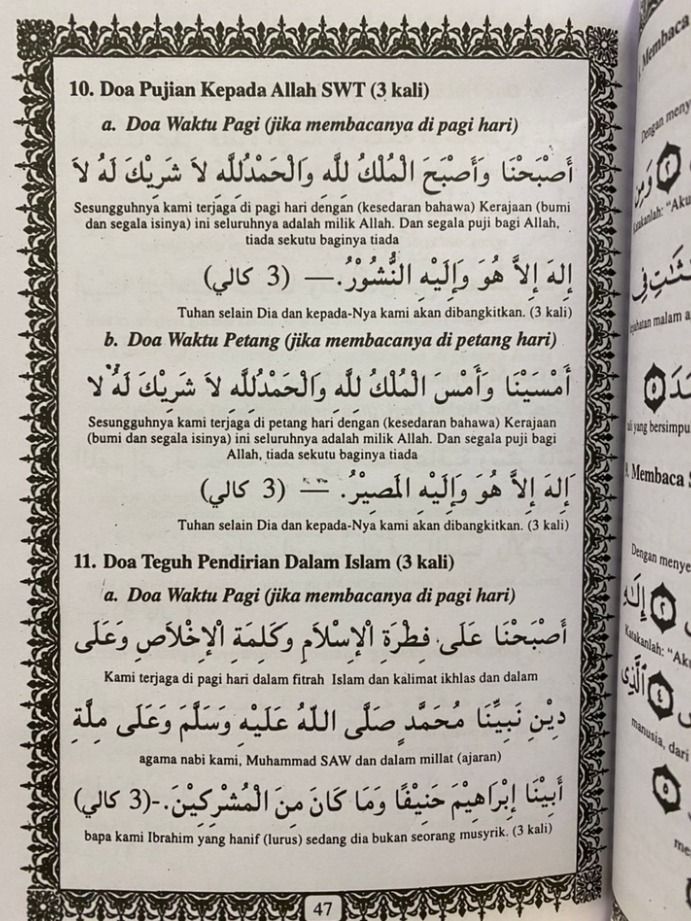 10. Doa Pujian Kepada Allah SWT (3 kali)
a. Doa Waktu Pagi (jika membacanya di pagi hari)
أَصْبَحْنَا وَأَصْبَحَ الْمُلْكُ لِلَّهِ وَالْحَمْدُلِلَّهِ لاَ شَرِيْكَ لَهُ لاَ
Sesungguhnya kami terjaga di pagi hari dengan (kesedaran bahawa) Kerajaan (bumi
dan segala isinya) ini seluruhnya adalah milik Allah. Dan segala puji bagi Allah,
tiada sekutu baginya tiada
إِلهَ إِلاَّ هُوَ وَإِلَيْهِ النُّشُوْرُ.— (3 كالي)
Tuhan selain Dia dan kepada-Nya kami akan dibangkitkan. (3 kali)
b. Doa Waktu Petang (jika membacanya di petang hari)
أَمْسَيْنَا وَأَمْسَ الْمُلْكُ لِلَّهِ وَالْحَمْدُلِلَّهِ لاَ شَرِيْكَ لَهُ لاَ
Sesungguhnya kami terjaga di petang hari dengan (kesedaran bahawa) Kerajaan
(bumi dan segala isinya) ini seluruhnya adalah milik Allah. Dan segala puji bagi
Allah, tiada sekutu baginya tiada
إِلهَ إِلاَّ هُوَ وَإِلَيْهِ الْمَصِيْرُ. — (3 كالي)
Tuhan selain Dia dan kepada-Nya kami akan dibangkitkan. (3 kali)
11. Doa Teguh Pendirian Dalam Islam (3 kali)
a. Doa Waktu Pagi (jika membacanya di pagi hari)
أَصْبَحْنَا عَلَى فِطْرَةِ الْإِسْلاَمِ وَكَلِمَةِ الْإِخْلاَصِ وَعَلَى
Kami terjaga di pagi hari dalam fitrah Islam dan kalimat ikhlas dan dalam
دِيْنِ نَبِيِّنَا مُحَمَّدٍ صَلَّى اللهُ عَلَيْهِ وَسَلَّمَ وَعَلَى مِلَّةِ
agama nabi kami, Muhammad SAW dan dalam millat (ajaran)
أَبِيْنَا إِبْرَاهِيْمَ حَنِيْفًا وَمَا كَانَ مِنَ الْمُشْرِكِيْنَ.-(3 كالي)
bapa kami Ibrahim yang hanif (lurus) sedang dia bukan seorang musyrik. (3 kali)
47
Membaca
Dengan meny
Katakanlah: "Aku
malam a
yang bersimpu
Membaca S
Dengan menye
Katakanlah: "Aku
الَّذِي
manusia, dari